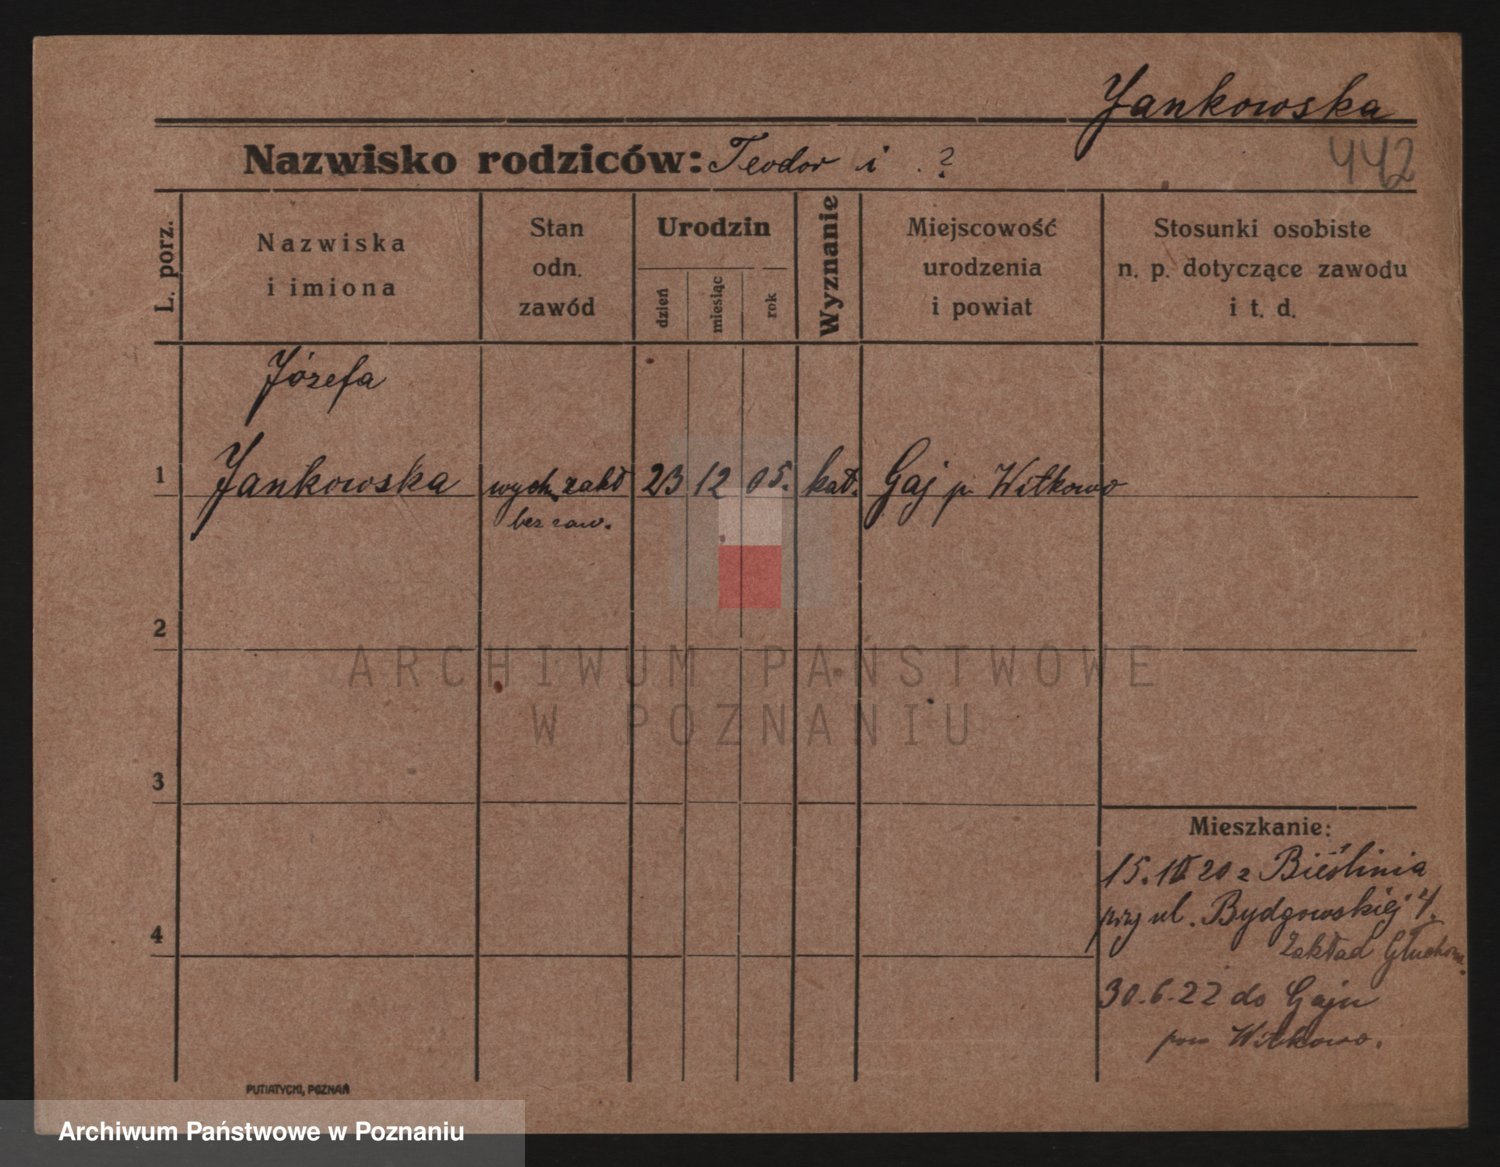 Jankowska
Nazwisko rodziców: Teodor i . ?
442
L. porz.
Nazwiska
i imiona
Stan
odn.
zawód
Urodzin
dzień
miesiąc
rok
Wyznanie
Miejscowość
urodzenia
i powiat
Stosunki osobiste
n. p. dotyczące zawodu
i t. d.
Józefa
1 Jankowska wych. zakł 23 12 05. kat. Gaj p. Witkowo
bez zaw.
2
ARCHIWUM PAŃSTWOWE
W POZNANIU
3
Mieszkanie:
15. 20 z Bieślinia
przy ul. Bydgowskiej 4.
4
Zakład Głuchon.
30.6.22 do Gaju
pow Witkowo.
PUTIATYCKI, POZNAŃ
Archiwum Państwowe w Poznaniu